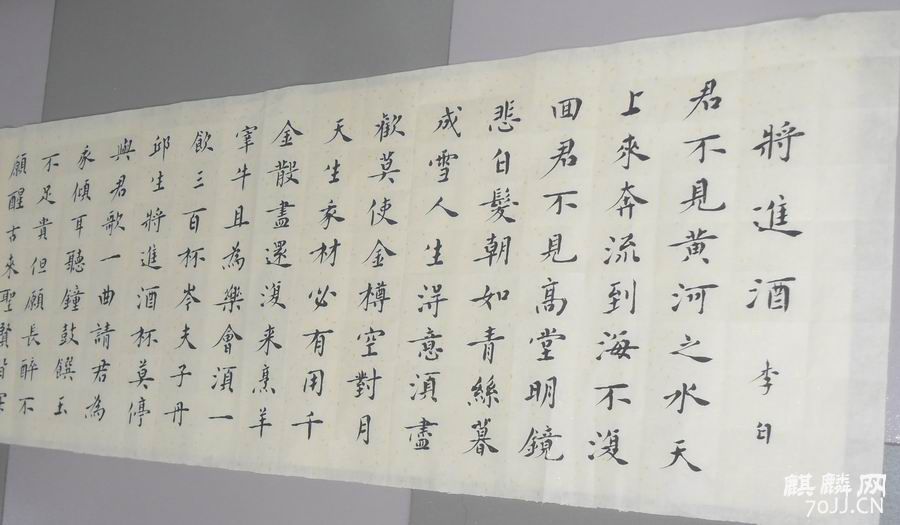 將進酒 李白
君不見黃河之水天
上來奔流到海不復
回君不見高堂明鏡
悲白髮朝如青絲暮
成雪人生得意須盡
歡莫使金樽空對月
天生我材必有用千
金散盡還復來烹羊
宰牛且為樂會須一
飲三百杯岑夫子丹
邱生將進酒杯莫停
與君歌一曲請君為
我傾耳聽鐘鼓饌玉
不足貴但願長醉不
願醒古來聖賢皆
麒麟网
70JJ.CN